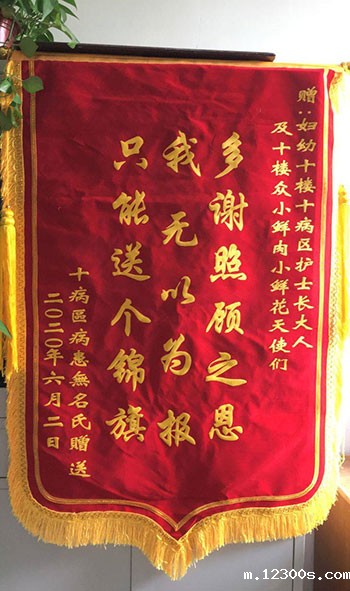 赠:妇幼十楼十病区护士长大人
及十楼众小鲜肉小鲜花天使们
多谢照顾之恩
我无以为报
只能送个锦旗
十病區病患無名氏贈送
二〇二〇年六月二日
m.12300s.com